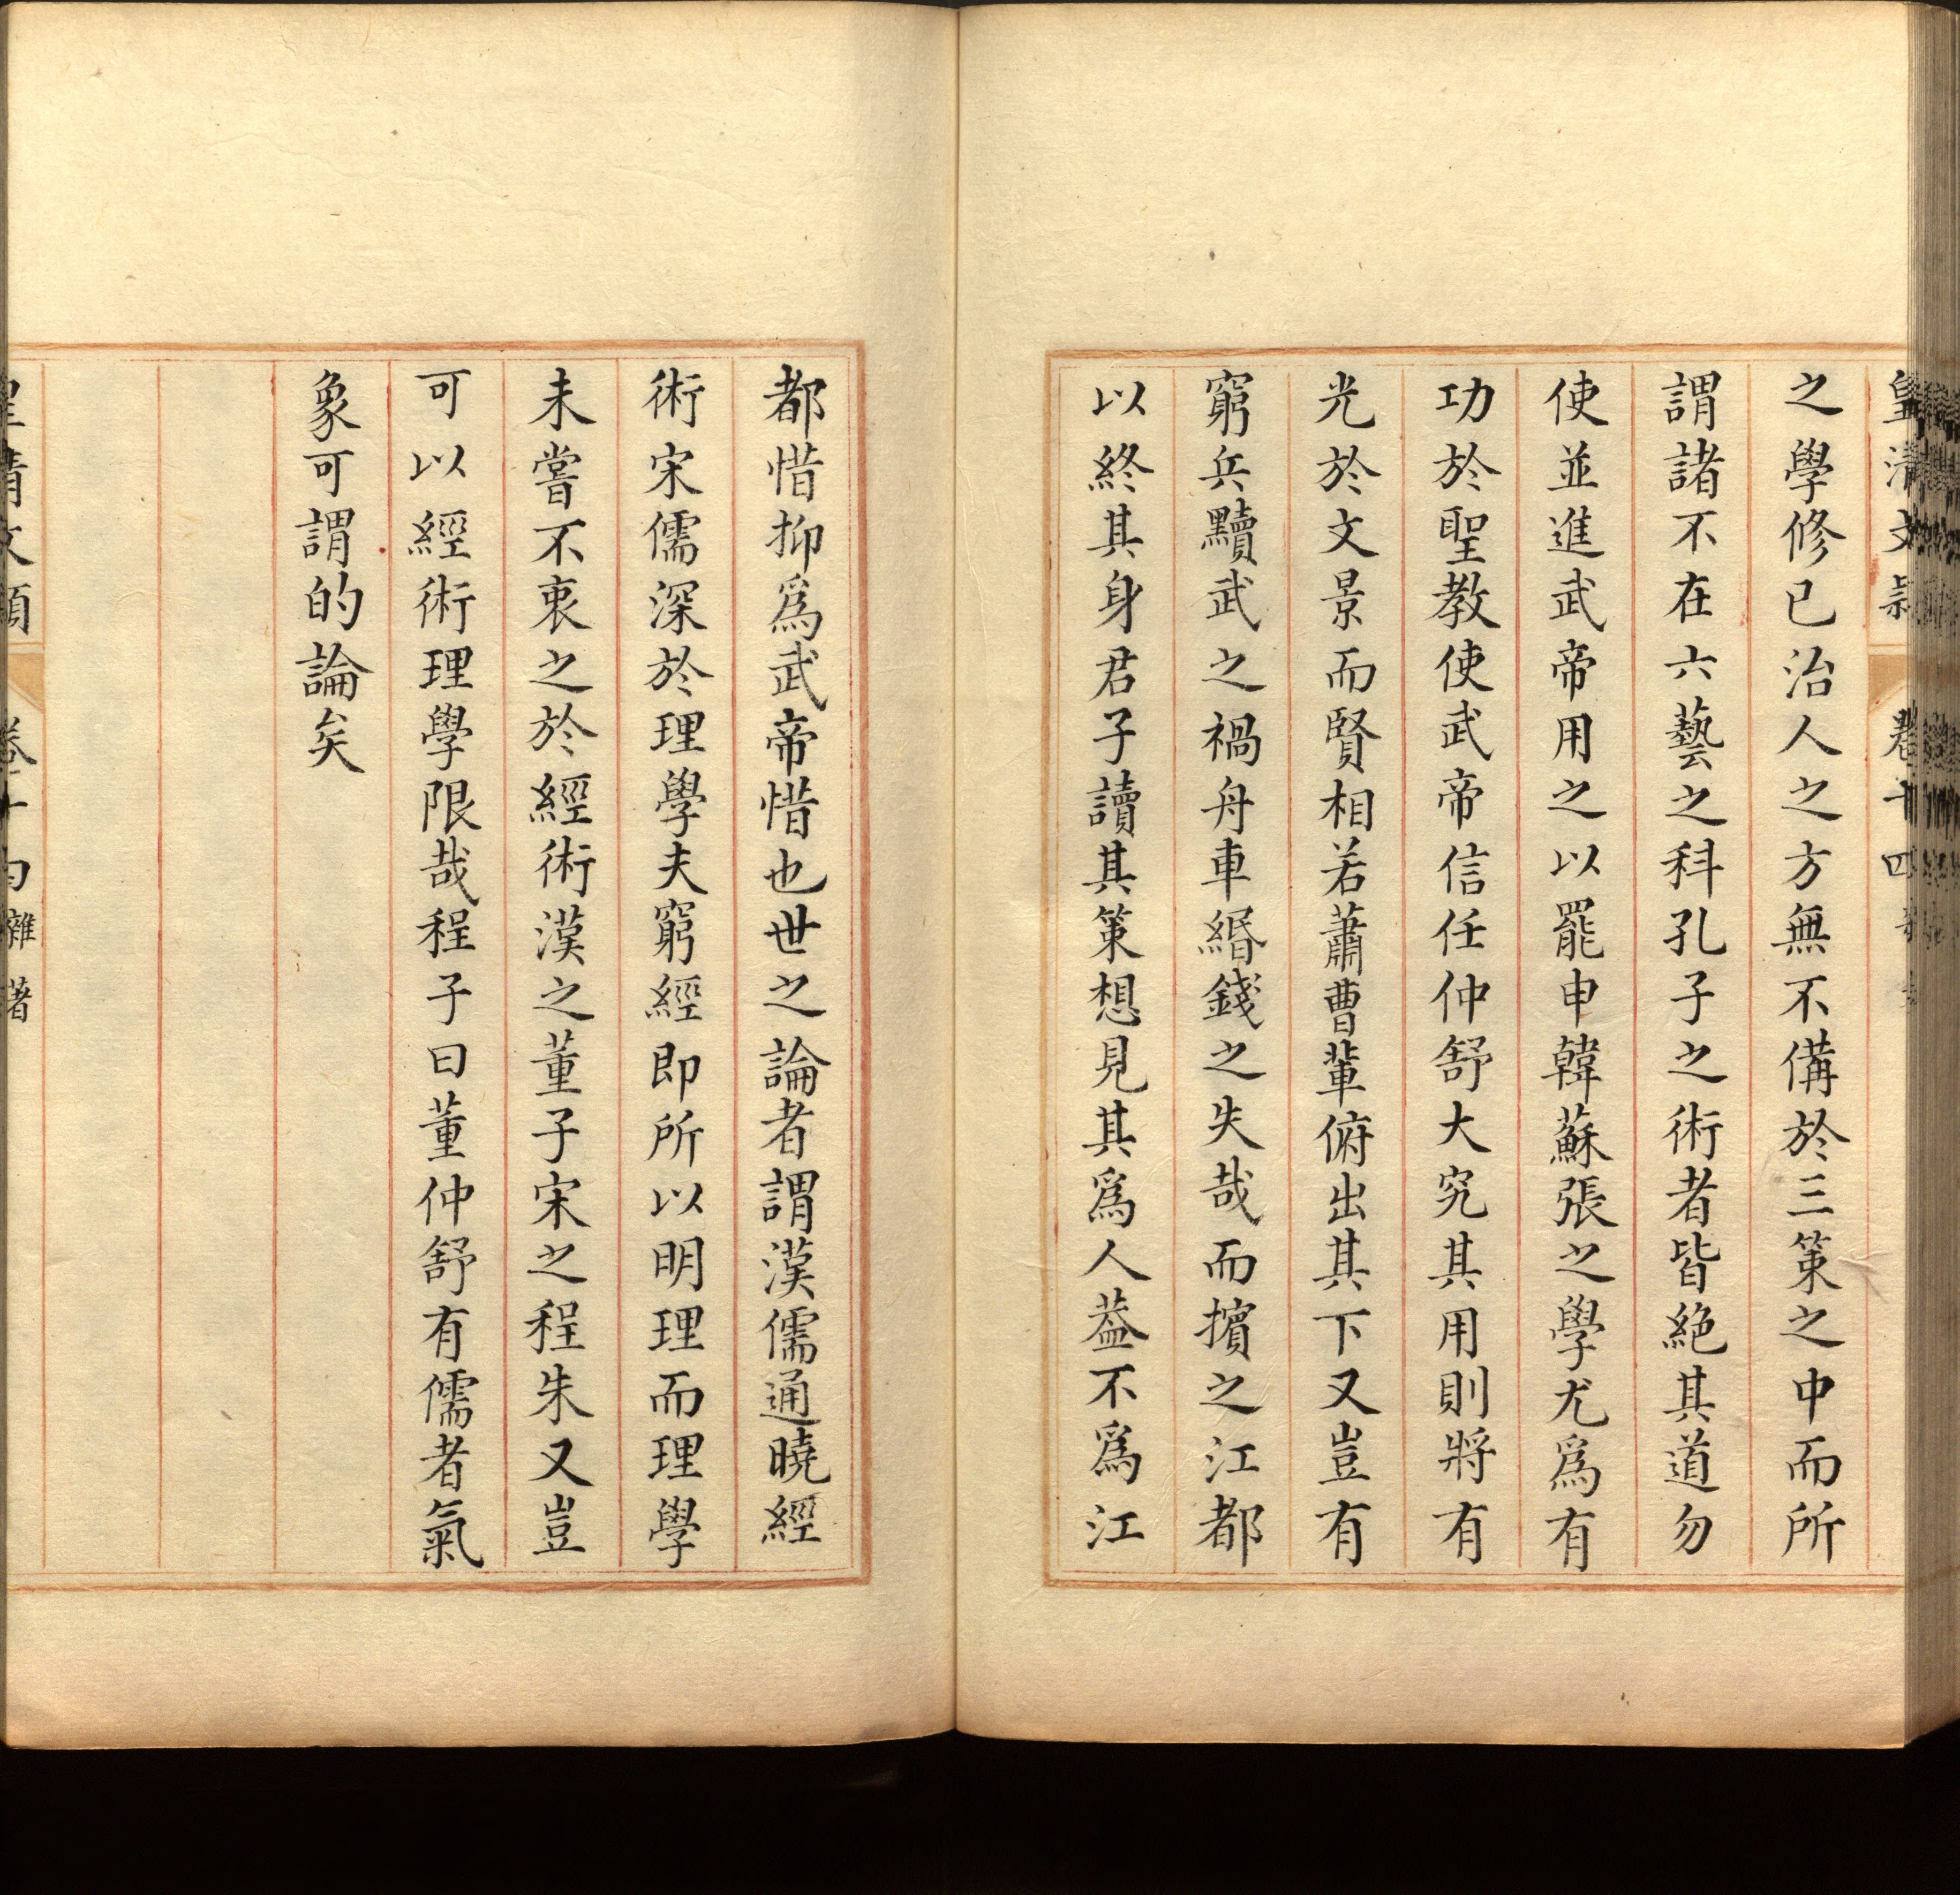 皇清文穎 卷十四
之學修已治人之方無不備於三策之中而所
謂諸不在六藝之科孔子之術者皆絕其道勿
使並進武帝用之以罷申韓蘇張之學尤爲有
功於聖教使武帝信任仲舒大究其用則將有
光於文景而賢相若蕭曹輩俯出其下又豈有
窮兵黷武之禍舟車緡錢之失哉而擯之江都
以終其身君子讀其策想見其爲人葢不爲江
都惜抑爲武帝惜也世之論者謂漢儒通曉經
術宋儒深於理學夫窮經即所以明理而理學
未嘗不衷之於經術漢之董子宋之程朱又豈
可以經術理學限哉程子曰董仲舒有儒者氣
象可謂的論矣
皇清文穎 卷十 雜著